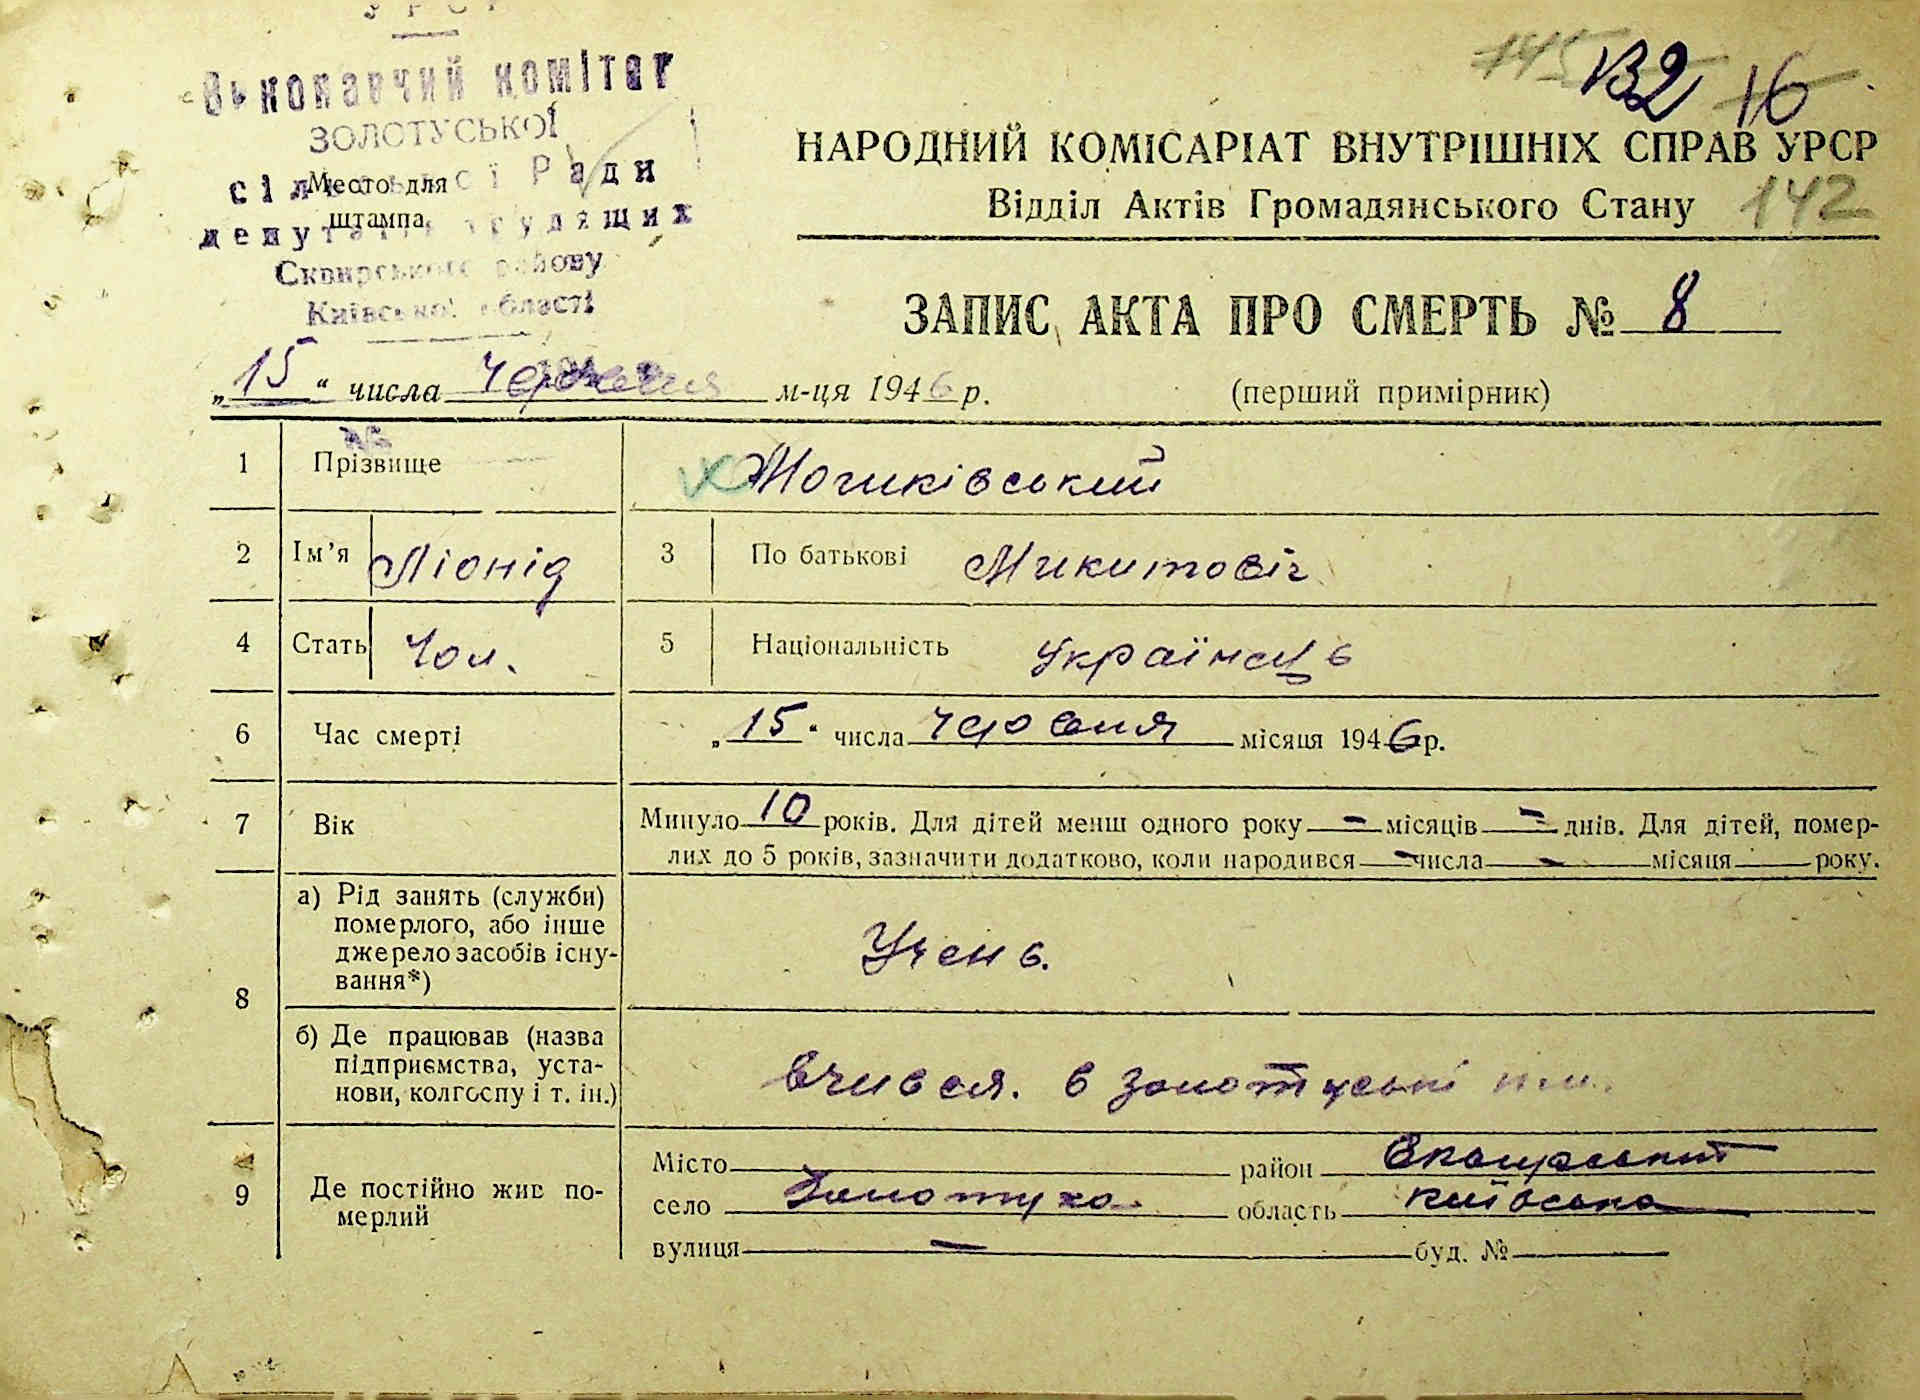 УРСР
Виконавчий комітет
ЗОЛОТУСЬКОЇ
сільської Ради
Место для
штампа
депутатів трудящих
Сквирського району
Київської області
145 132 16
НАРОДНИЙ КОМІСАРІАТ ВНУТРІШНІХ СПРАВ УРСР
Відділ Актів Громадянського Стану 142
ЗАПИС АКТА ПРО СМЕРТЬ № 8
„15“ числа Червня м-ця 1946 р. (перший примірник)
1 Прізвище
2 Ім'я Ліонід 3 По батькові Микитовіч
4 Стать Чол. 5 Національність Українець
6 Час смерті „15“ числа червня місяця 1946 р.
7 Вік Минуло 10 років. Для дітей менш одного року — місяців — днів. Для дітей, помер-
лих до 5 років, зазначити додатково, коли народився — числа — місяця року.
8 а) Рід занять (служби)
померлого, або інше
джерело засобів існу-
вання*)
Учень.
б) Де працював (назва
підприємства, уста-
нови, колгоспу і т. ін.)
вчився. в золотуські
9 Де постійно жив по-
мерлий
Місто район Сквирський
село Золотуха область Київська
вулиця — буд. №